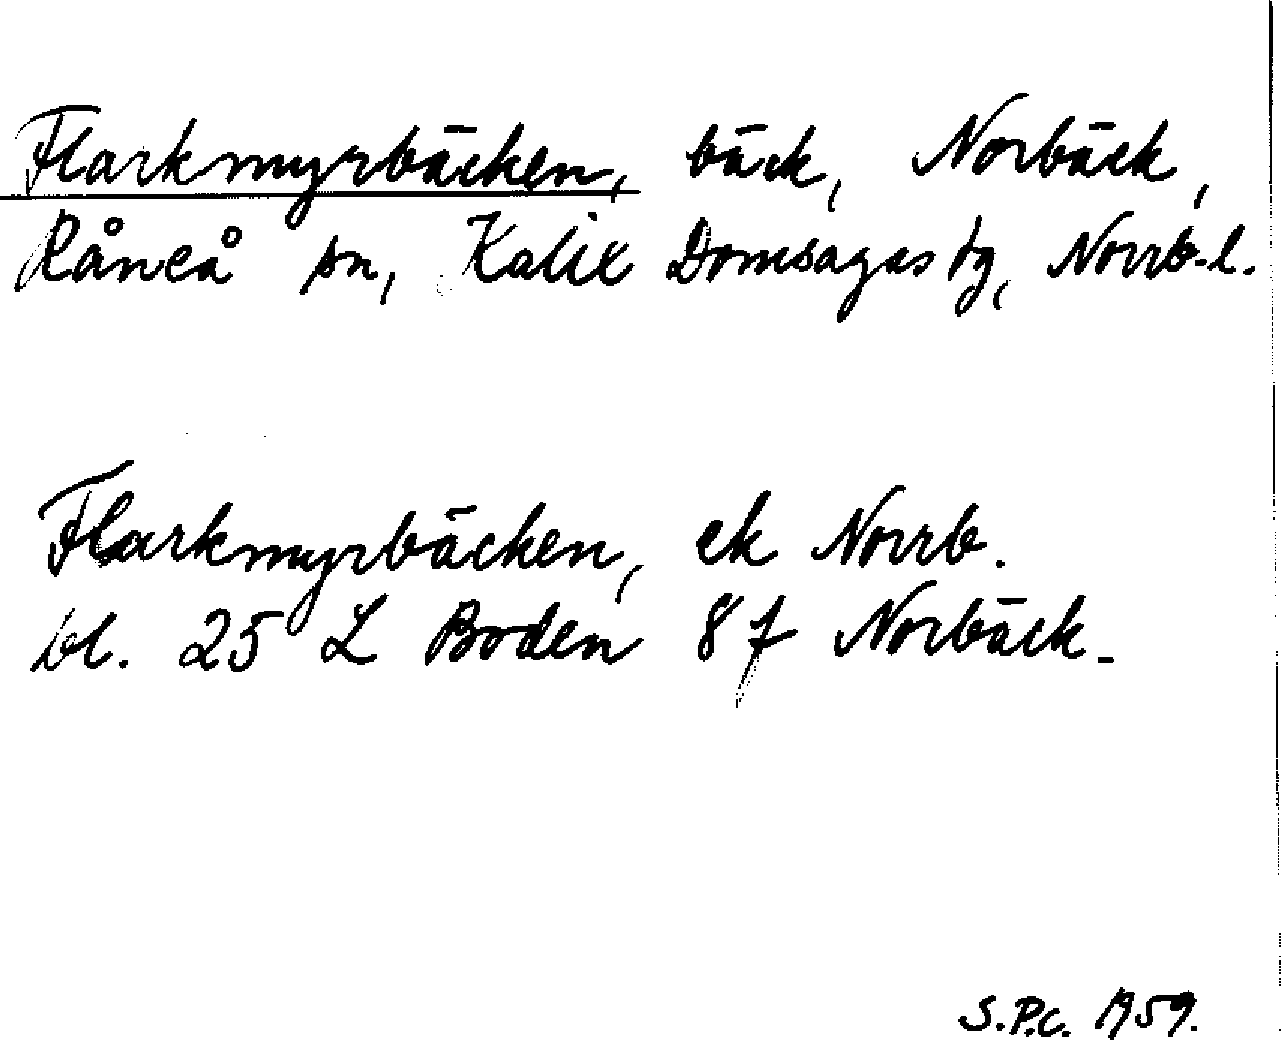 Flarkmyrbäcken, bäck, Norbäck,
Råneå sn, Kalix Domsagas tg, Norrb.l.
Flarkmyrbäcken, ek Norrb.
bl. 25 L Boden 8 f Norbäck.
S.P.C. 1959.